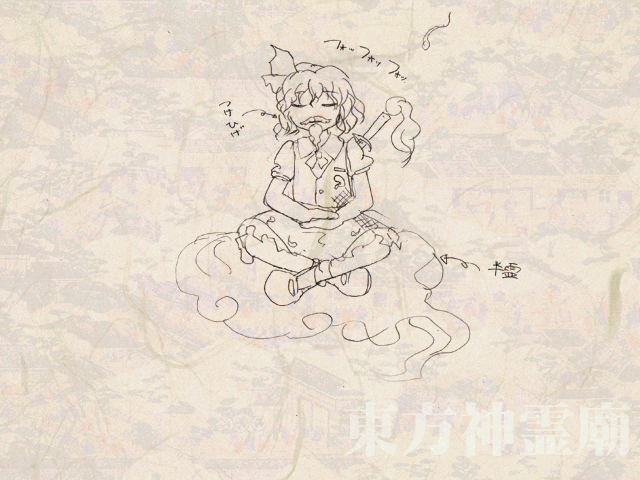 フォッフォッフォッ
つけひげ
半霊
東方神霊廟